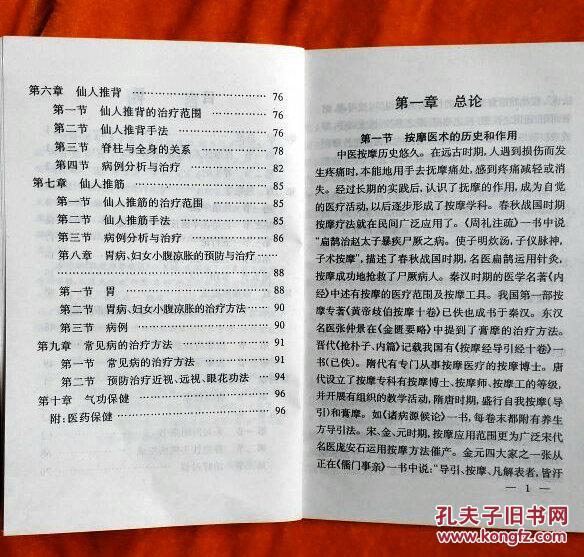 第六章 仙人推背 76
第一节 仙人推背的治疗范围 76
第二节 仙人推背手法 76
第三节 脊柱与全身的关系 78
第四节 病例分析与治疗 82
第七章 仙人推筋 85
第一节 仙人推筋的治疗范围 85
第二节 仙人推筋手法 85
第三节 病例分析与治疗 86
第八章 胃病、妇女小腹凉胀的预防与治疗
88
第一节 胃 88
第二节 胃病、妇女小腹凉胀的治疗方法 90
第三节 病例 90
第九章 常见病的治疗方法 91
第一节 常见病的治疗方法 91
第二节 预防治疗近视、远视、眼花功法 94
第十章 气功保健 96
附:医药保健 96
第一章 总论
第一节 按摩医术的历史和作用
中医按摩历史悠久。在远古时期,人遇到损伤而发
生疼痛时,本能地用手去抚摩痛处,感到疼痛减轻或消
失。经过长期的实践后,认识了抚摩的作用,成为自觉
的医疗活动,以后逐步形成了按摩学科。春秋战国时期
按摩疗法就在民间广泛应用了。《周礼注疏》一书中说
“扁鹊治赵太子暴疾尸厥之病。使子明炊汤,子仪脉神,
子术按摩”,描述了春秋战国时期,名医扁鹊运用针灸,
按摩成功地抢救了尸厥病人。秦汉时期的医学名著《内
经》中述有按摩的医疗范围及按摩工具。我国第一部按
摩专著《黄帝歧伯按摩十卷》已佚也成书于秦汉。东汉
名医张仲景在《金匮要略》中提到了膏摩的治疗方法。
晋代《抢朴子、内篇》记载我国有《按摩经导引经十卷》一
书(已佚)。隋代有专门从事按摩医疗的按摩博士。唐
代设立了按摩专科有按摩博士、按摩师、按摩工的等级,
并开展有组织的教学活动,隋唐时期,盛行自我按摩(导
引)和膏摩。如《诸病源候论》一书,每卷末都附有养生
方导引法。宋、金、元时期,按摩应用范围更为广泛宋代
名医庞安石运用按摩方法催产。金元四大家之一张从
正在《儒门事亲》一书中说:“导引、按摩、凡解表者,皆汗
— 1 —
孔夫子旧书网